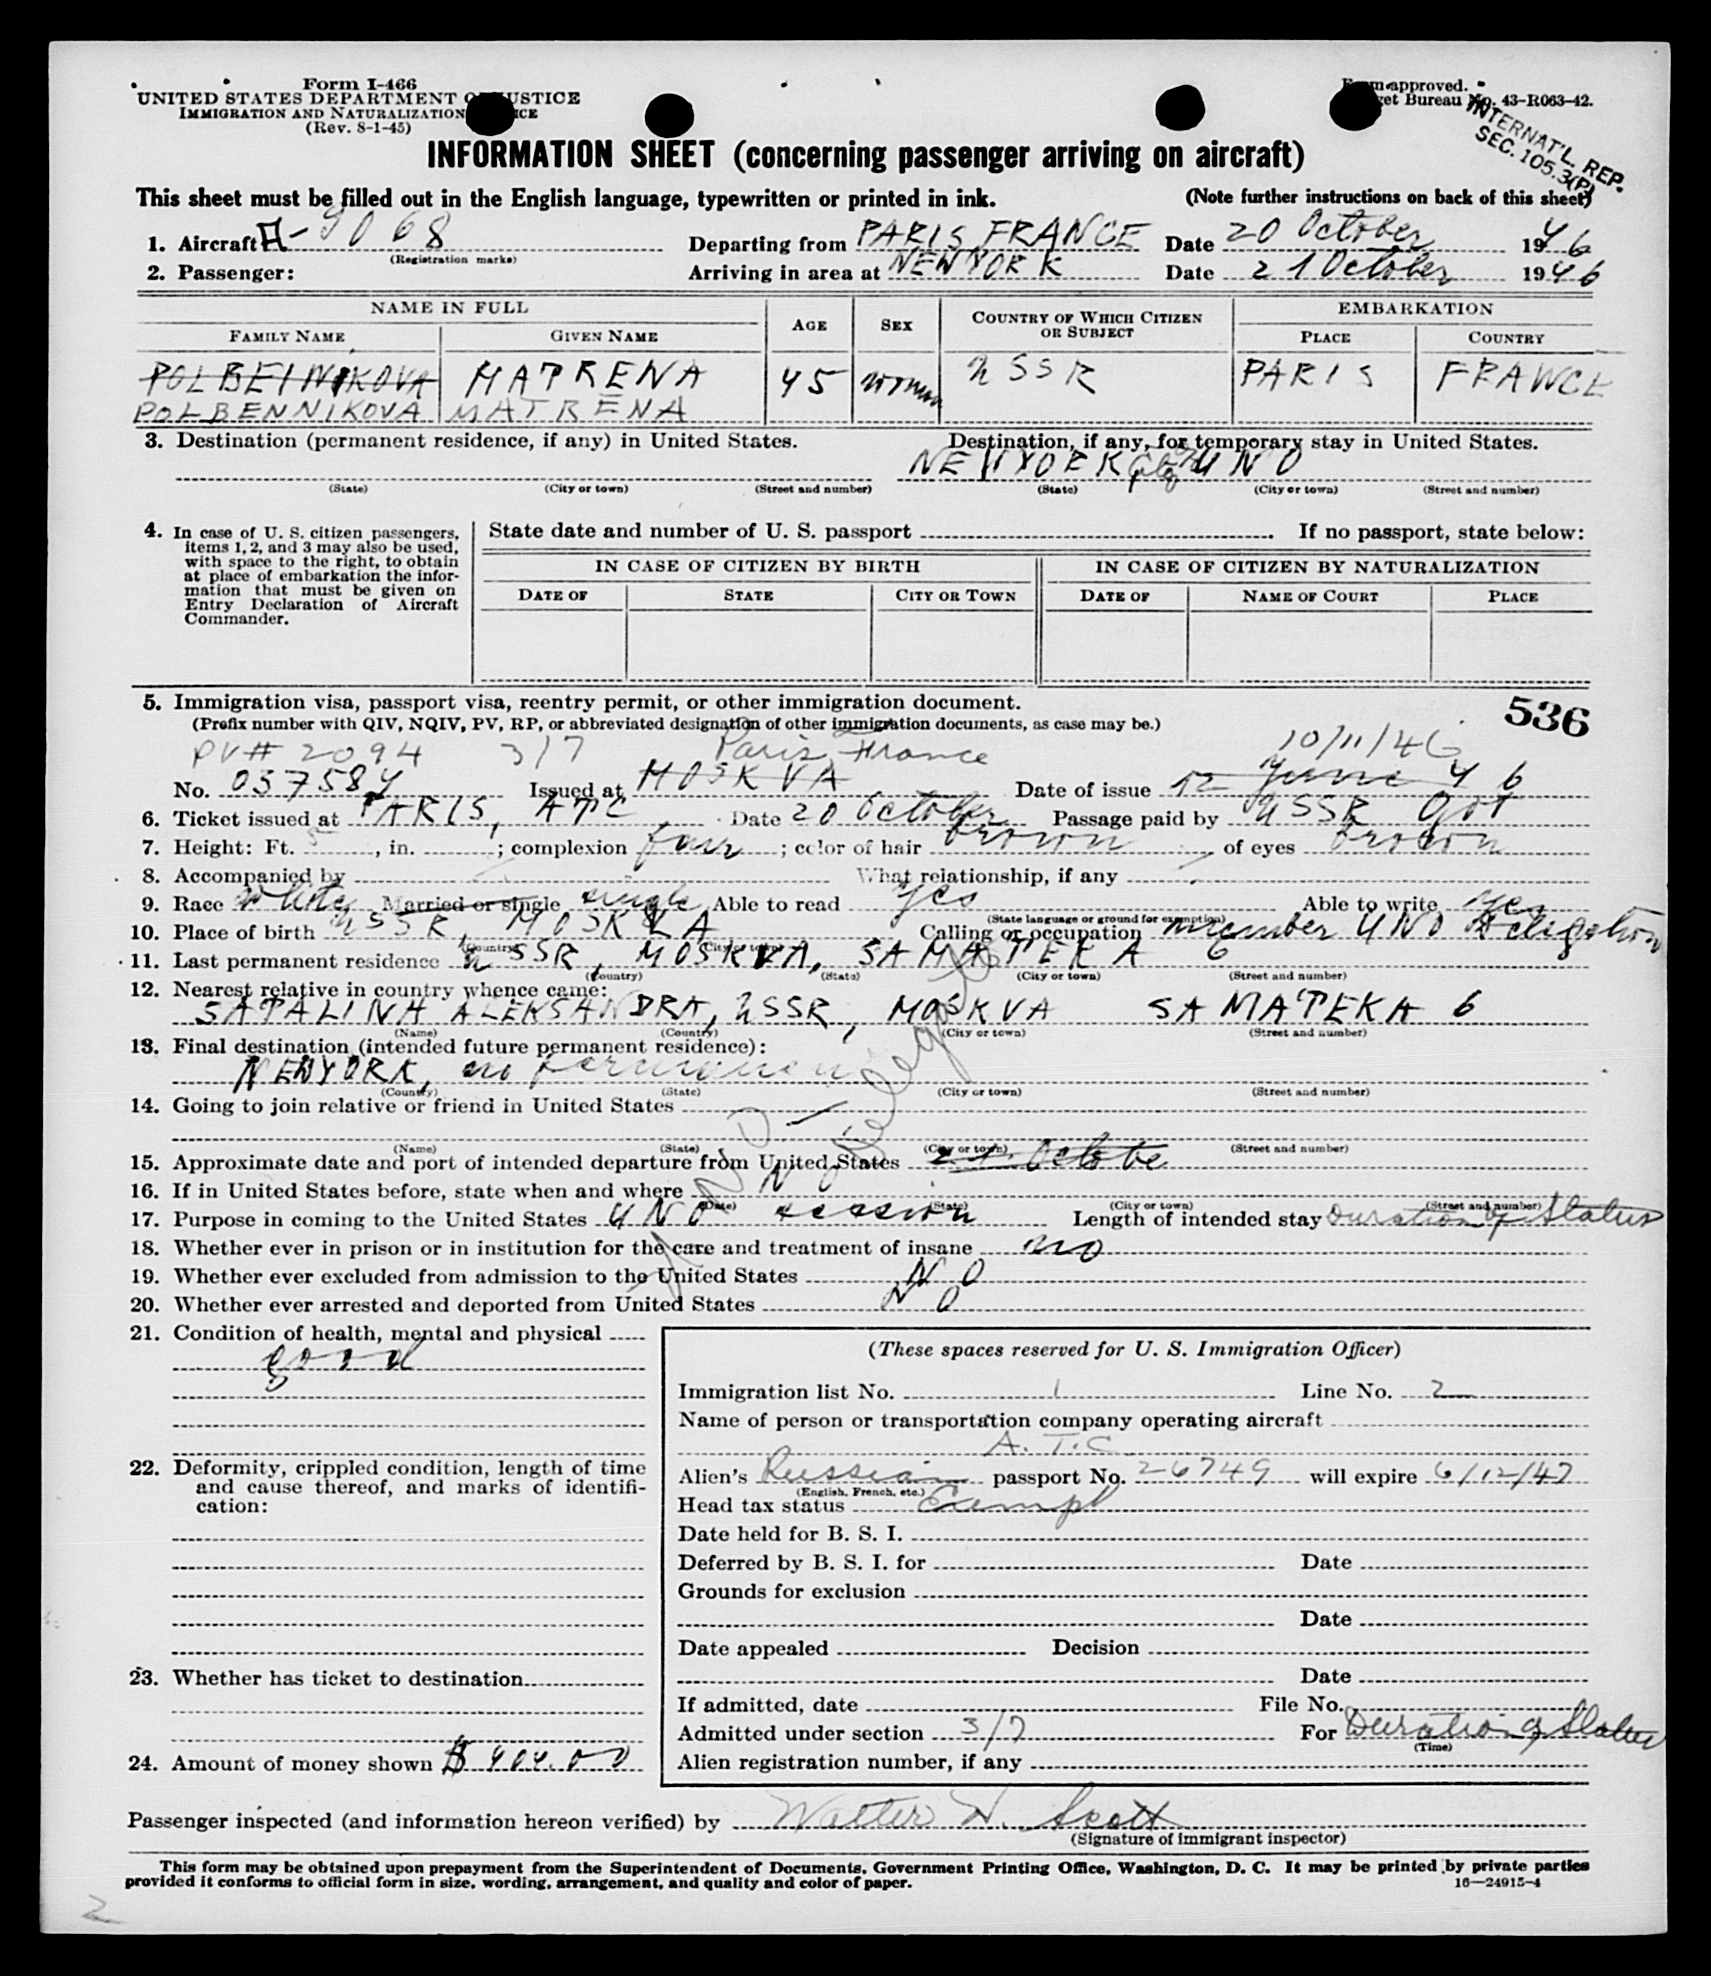 Form I-466
UNITED STATES DEPARTMENT OF JUSTICE
IMMIGRATION AND NATURALIZATION SERVICE
(Rev. 8-1-45)
Form approved.
Budget Bureau No. 43-R063-42.
INTERNAT'L. REP.
SEC. 105.3(P)
INFORMATION SHEET (concerning passenger arriving on aircraft)
This sheet must be filled out in the English language, typewritten or printed in ink. (Note further instructions on back of this sheet)
1. Aircraft A-9068 Departing from PARIS, FRANCE Date 20 October 1946
(Registration marks)
2. Passenger: Arriving in area at NEW YORK Date 21 October 1946
NAME IN FULL AGE SEX COUNTRY OF WHICH CITIZEN OR SUBJECT EMBARKATION
FAMILY NAME GIVEN NAME PLACE COUNTRY
POLBEINIKOVA MATRENA 45 woman USSR PARIS FRANCE
POLBENNIKOVA MATRENA
3. Destination (permanent residence, if any) in United States. Destination, if any, for temporary stay in United States.
NEW YORK City UNO
(State) (City or town) (Street and number) (State) (City or town) (Street and number)
4. In case of U. S. citizen passengers, items 1, 2, and 3 may also be used, with space to the right, to obtain at place of embarkation the information that must be given on Entry Declaration of Aircraft Commander.
State date and number of U. S. passport If no passport, state below:
IN CASE OF CITIZEN BY BIRTH IN CASE OF CITIZEN BY NATURALIZATION
DATE OF STATE CITY OR TOWN DATE OF NAME OF COURT PLACE
5. Immigration visa, passport visa, reentry permit, or other immigration document.
(Prefix number with QIV, NQIV, PV, RP, or abbreviated designation of other immigration documents, as case may be.)
536
PV# 2094 3/7 Paris, France 10/11/46
No. 037584 Issued at MOSKVA Date of issue 12 June 46
6. Ticket issued at PARIS, ATC Date 20 October Passage paid by USSR Gov
7. Height: Ft. 5, in. ; complexion fair; color of hair brown, of eyes brown
8. Accompanied by What relationship, if any
9. Race white Married or single single Able to read yes Able to write yes
(State language or ground for exemption)
10. Place of birth USSR, MOSKVA Calling or occupation member UNO delegation
(Country) (City or town)
11. Last permanent residence USSR, MOSKVA, SAMATEKA 6
(Country) (State) (City or town) (Street and number)
12. Nearest relative in country whence came:
SATALINA ALEKSANDRA, USSR, MOSKVA SAMATEKA 6
(Name) (Country) (City or town) (Street and number)
13. Final destination (intended future permanent residence):
NEW YORK, no permanent
(Country) (State) (City or town) (Street and number)
14. Going to join relative or friend in United States
(Name) (State) (City or town) (Street and number)
UNO - Delegate
15. Approximate date and port of intended departure from United States 21 Octobe
16. If in United States before, state when and where NO
(Date) (State) (City or town) (Street and number)
17. Purpose in coming to the United States UNO session Length of intended stay Duration of Status
18. Whether ever in prison or in institution for the care and treatment of insane no
19. Whether ever excluded from admission to the United States NO
20. Whether ever arrested and deported from United States NO
21. Condition of health, mental and physical
good
22. Deformity, crippled condition, length of time and cause thereof, and marks of identification:
23. Whether has ticket to destination
24. Amount of money shown $404.00
(These spaces reserved for U. S. Immigration Officer)
Immigration list No. 1 Line No. 2
Name of person or transportation company operating aircraft
A.T.C
Alien's Russian passport No. 26749 will expire 6/12/47
(English, French, etc.)
Head tax status Exempt
Date held for B. S. I.
Deferred by B. S. I. for Date
Grounds for exclusion
Date
Date appealed Decision
Date
If admitted, date File No.
Admitted under section 3/7 For Duration of Status
(Time)
Alien registration number, if any
Passenger inspected (and information hereon verified) by Walter W. Scott
(Signature of immigrant inspector)
This form may be obtained upon prepayment from the Superintendent of Documents, Government Printing Office, Washington, D. C. It may be printed by private parties
provided it conforms to official form in size, wording, arrangement, and quality and color of paper.
16—24915-4
2